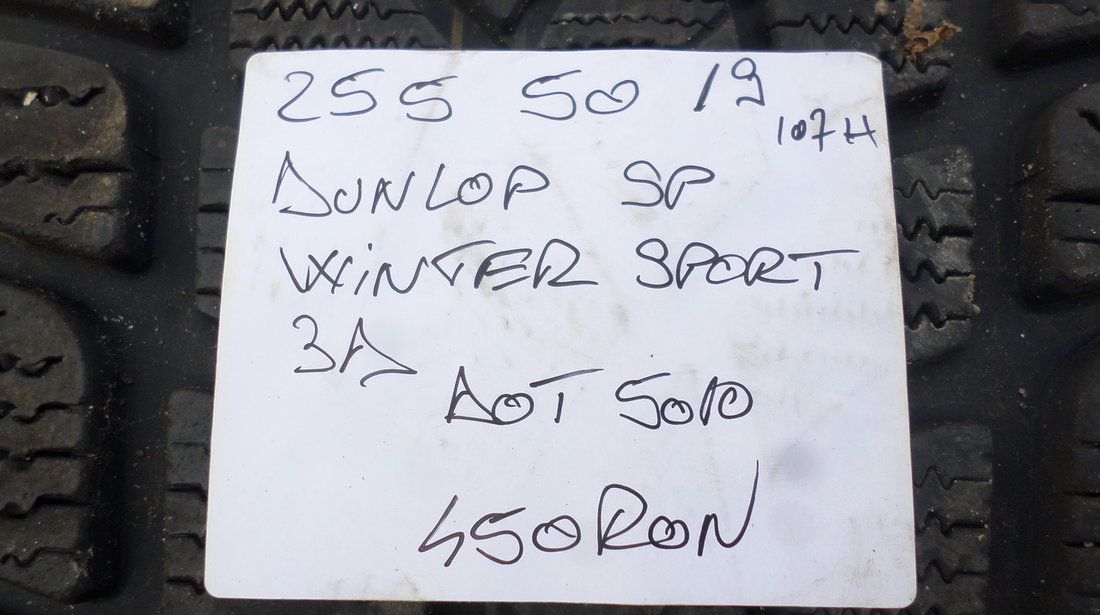 255 50 19
107H
DUNLOP SP
WINTER SPORT
3D
DOT 5010
450RON